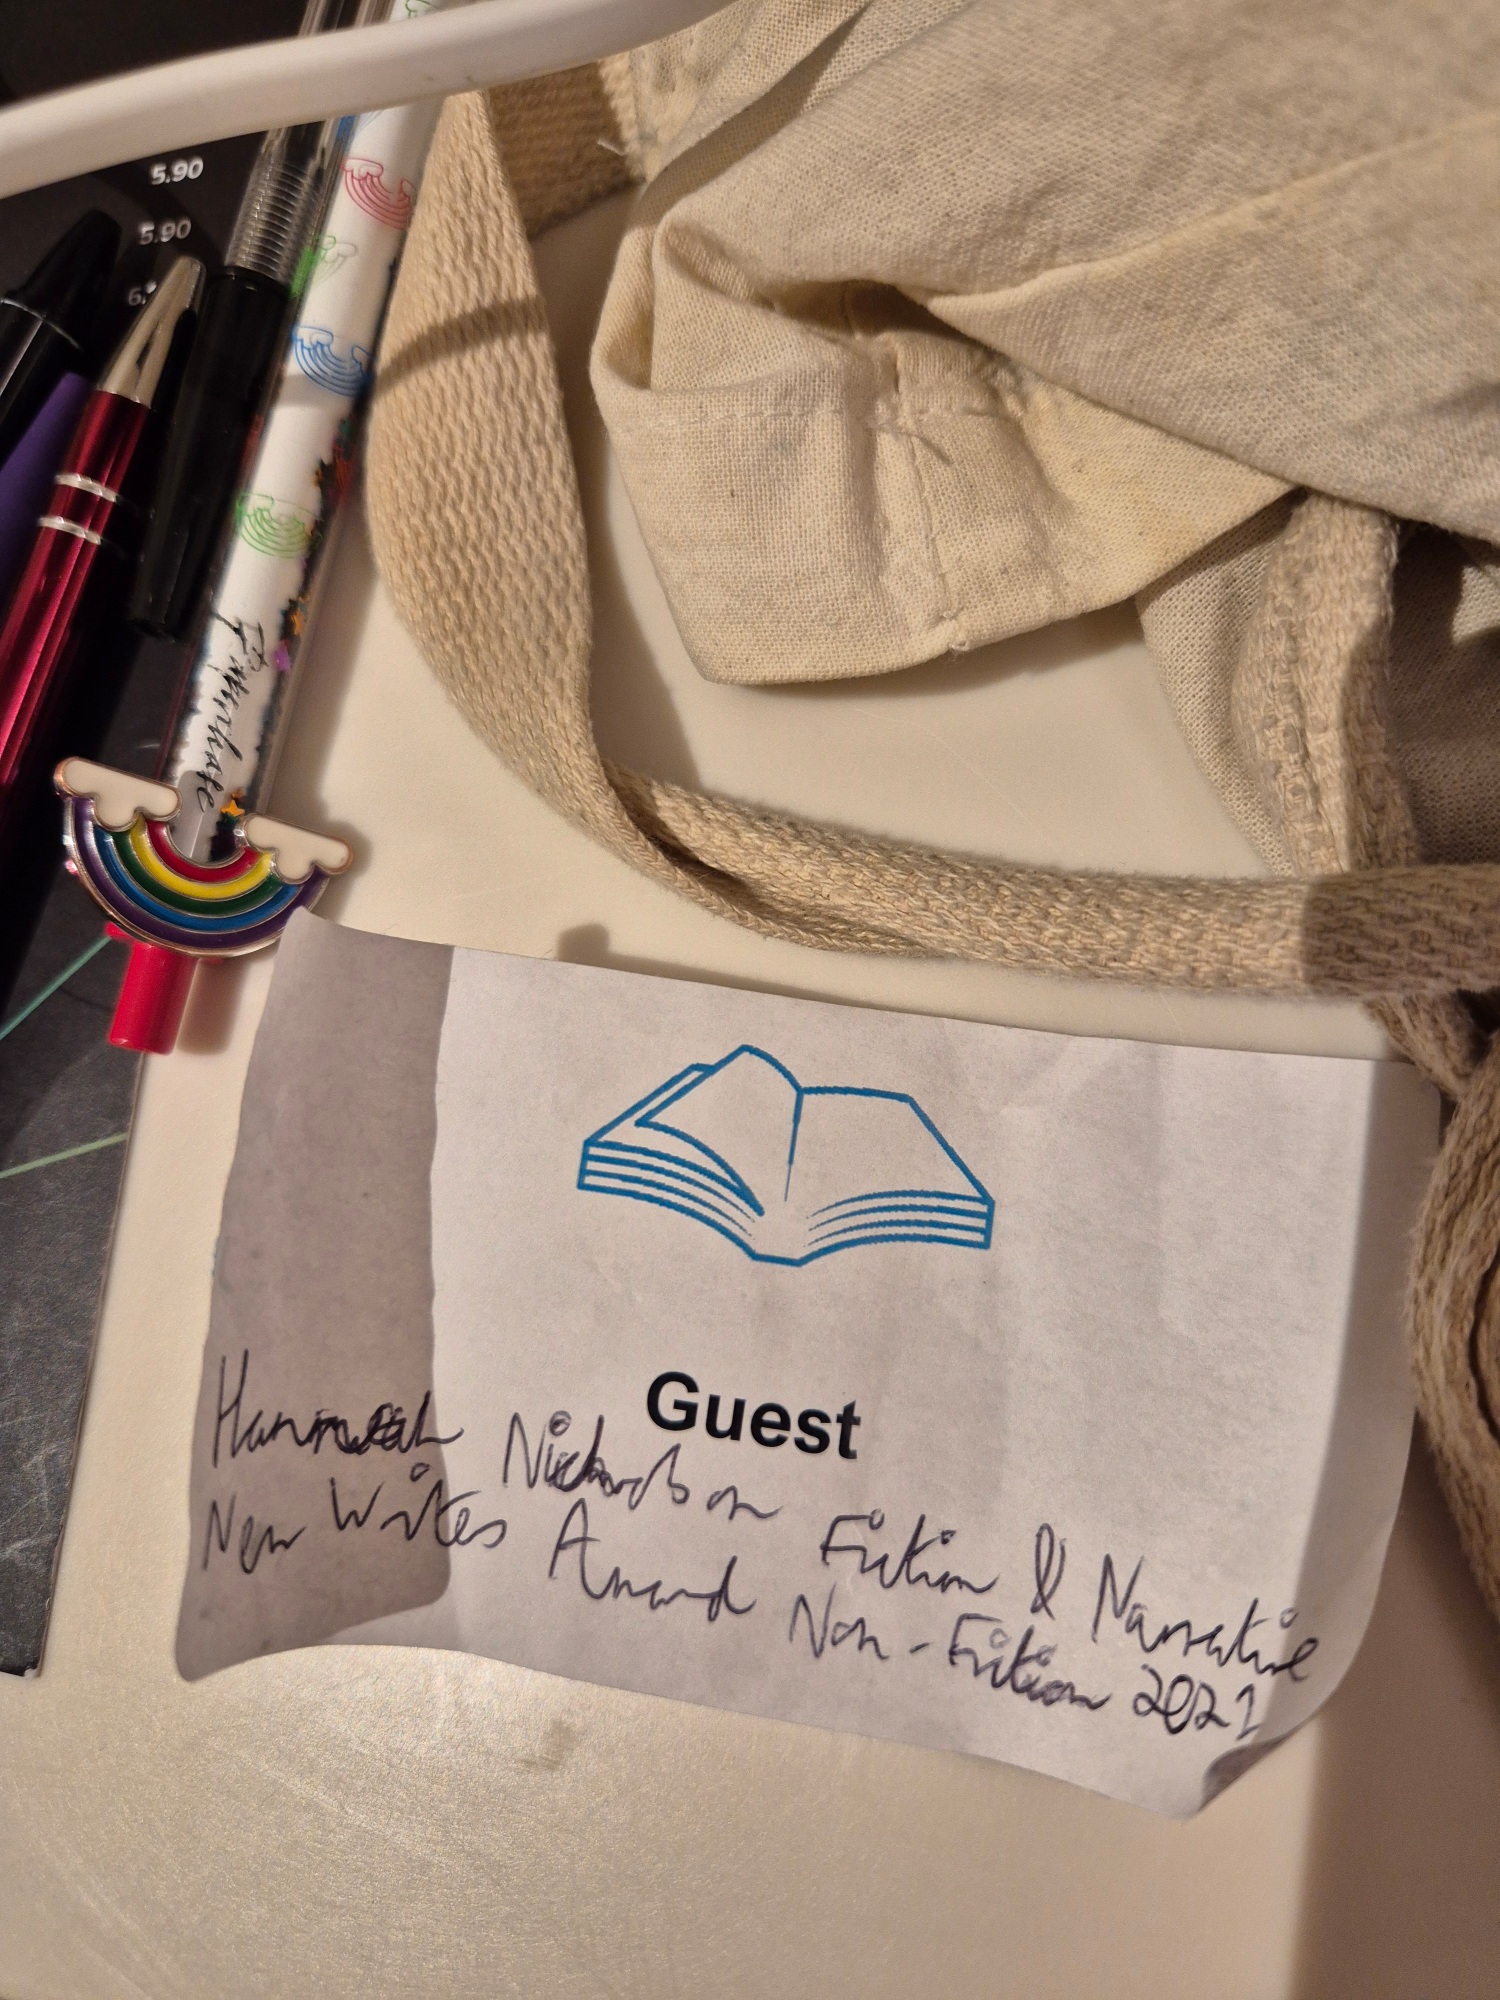 5.90
5.90
6.
Guest
Hannah Nickardson Fiction & Narrative
New Writes Award Non-Fiction 2021